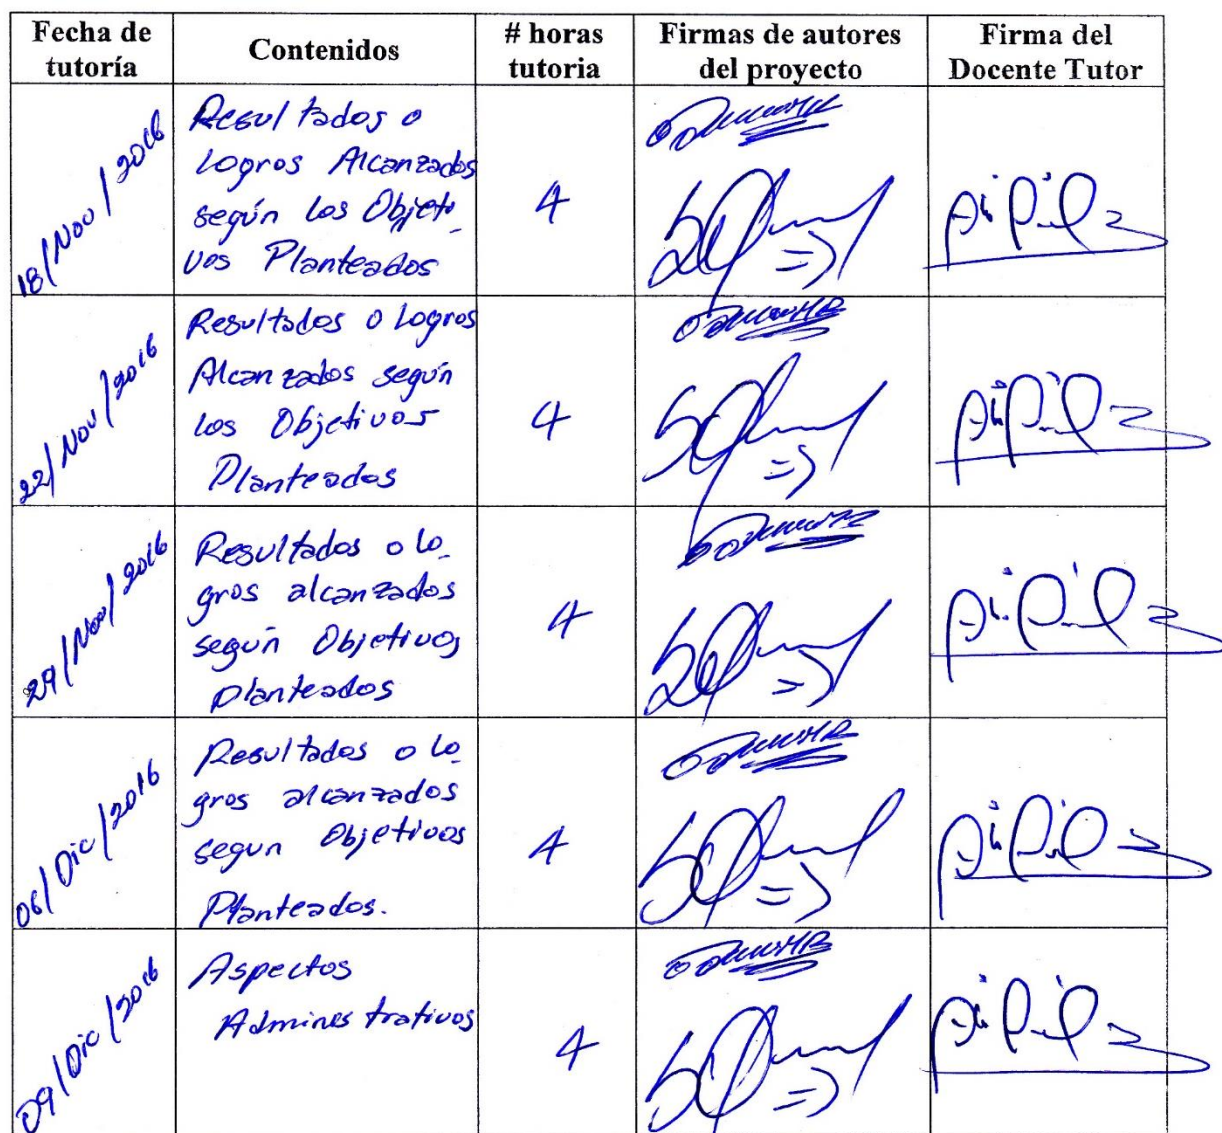 Fecha de tutoría
Contenidos
# horas tutoria
Firmas de autores del proyecto
Firma del Docente Tutor
18/Nov/2016
Resultados o
Logros Alcanzados
según los Objeti-
vos Planteados
4
22/Nov/2016
Resultados o Logros
Alcanzados según
los Objetivos
Planteados
4
29/Nov/2016
Resultados o lo-
gros alcanzados
según Objetivos
planteados
4
06/Dic/2016
Resultados o lo-
gros alcanzados
segun Objetivos
Planteados.
4
09/Dic/2016
Aspectos
Administrativos
4